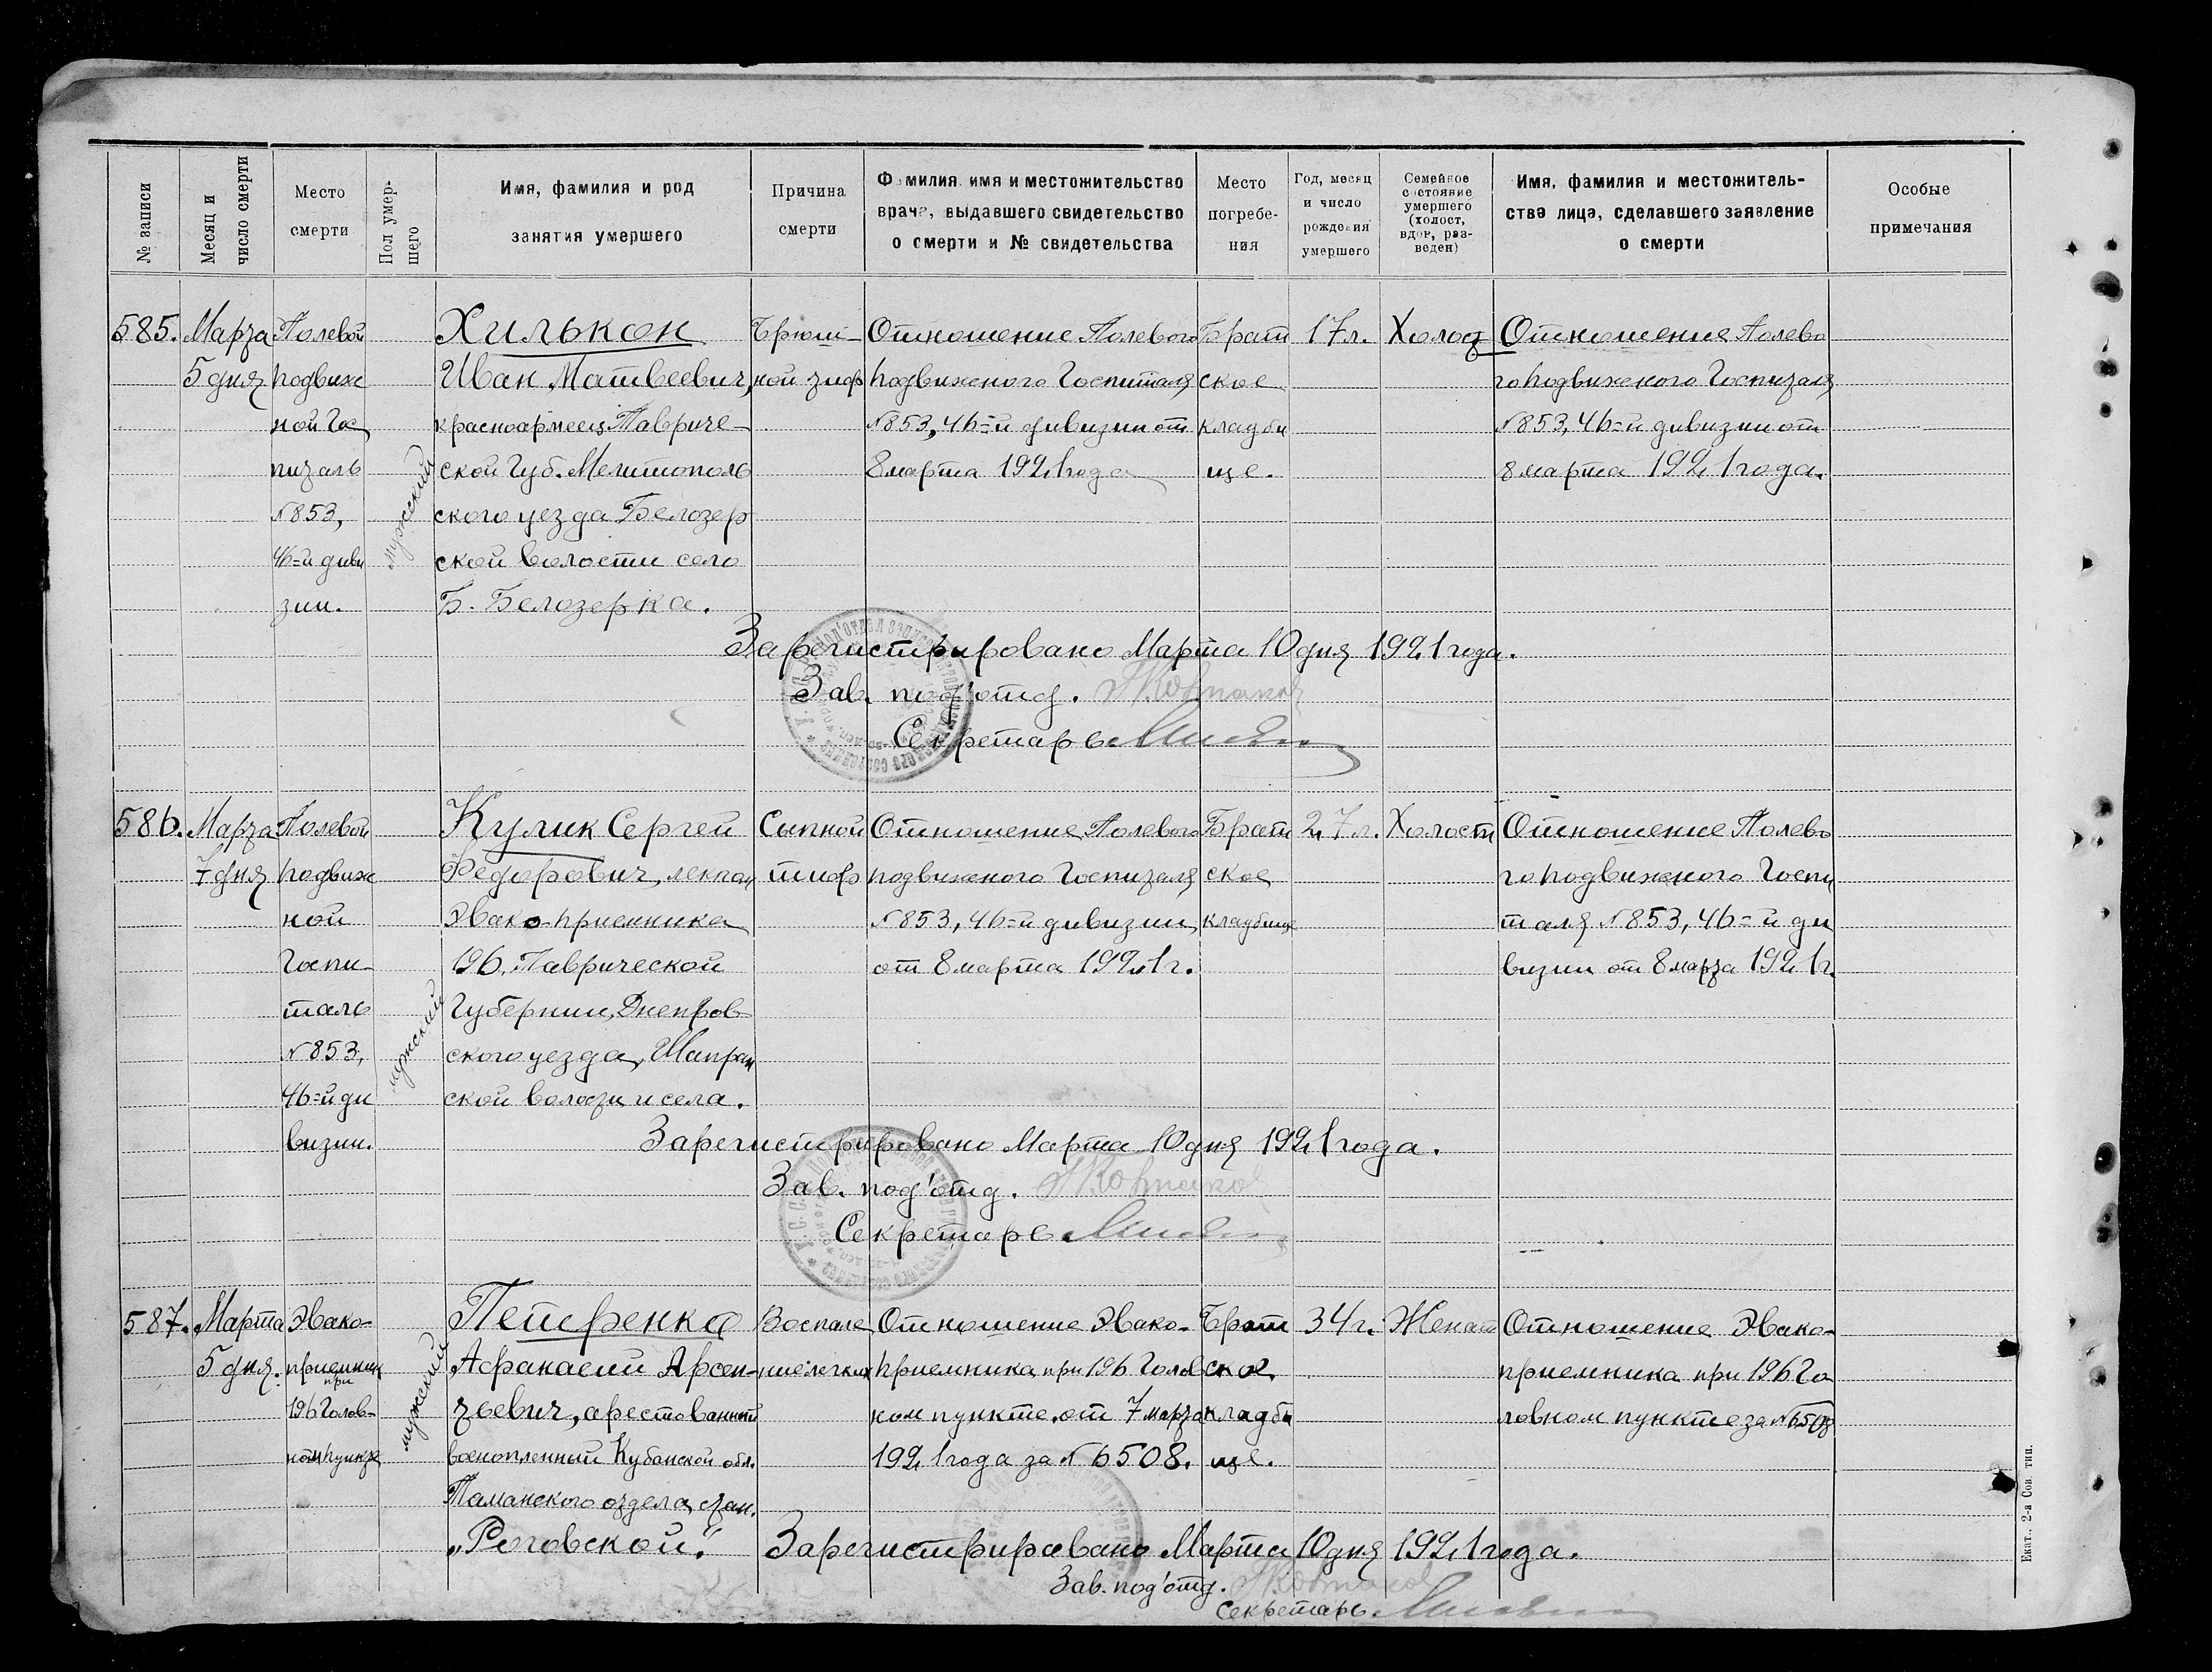 № записи
Месяц и
число смерти
Место
смерти
Пол умер-
шего
Имя, фамилия и род
занятия умершего
Причина
смерти
Фамилия имя и местожительство
врача, выдавшего свидетельство
о смерти и № свидетельства
Место
погребе-
ния
Год, месяц
и число
рождения
умершего
Семейное
состояние
умершего
(холост,
вдов, раз-
веден)
Имя, фамилия и местожитель-
ство лица, сделавшего заявление
о смерти
Особые
примечания
585.
Марта
5 дня
Полевой
подвиж
ной Гос
питаль
№ 853,
46=й диви
зии.
мужский
Хилькон
Иван Матвеевич,
красноармеец Тавриче-
ской Губ. Мелитополь
ского уезда Белозер
ской волости село
Б. Белозерка.
Брюш-
ной тиф
Отношение Полевого
подвижного Госпиталя
№ 853, 46=й дивизии от
8 марта 1921 года
Брат
ское
кладби
ще.
17 л.
Холост
Отношение Полево
го подвижного Госпиталя
№ 853, 46=й дивизии от
8 марта 1921 года.
Зарегистрировано Марта 10 дня 1921 года.
Зав. под'отд.
Секретарь
586.
Марта
7 дня
Полевой
подвиж
ной
Госпи-
таль
№ 853,
46=й ди
визии.
мужский
Кулик Сергей
Федорович, лекпом
Эвако-приемника
196, Таврической
Губернии, Днепров-
ского уезда,
ской волости и села.
Сыпной
тиф
Отношение Полевого
подвижного Госпиталя
№ 853, 46=й дивизии
от 8 марта 1921 г.
Брат
ское
кладбище
27 л.
Холост
Отношение Полево
го подвижного Госпи
таля № 853, 46=й ди
визии от 8 марта 1921 г.
Зарегистрировано Марта 10 дня 1921 года.
Зав. под'отд.
Секретарь
587.
Марта
5 дня.
Эвако-
приемник
при
196 Голов-
ном пункте
мужский
Петренко
Афанасий Арсен-
тьевич, арестованный
военопленный Кубанской обл.
Таманского отдела, стан.
„Роговской".
Воспале
ние легких
Отношение Эвако-
приемника при 196 Голов
ном пункте, от 7 марта
1921 года за № 6508.
Брат
ское
кладби
ще.
34 г.
Женат
Отношение Эвако-
приемника при 196 Го
ловном пункте за № 6508
Зарегистрировано Марта 10 дня 1921 года.
Зав. под'отд.
Секретарь
Екат.. 2-а Сов. тип.